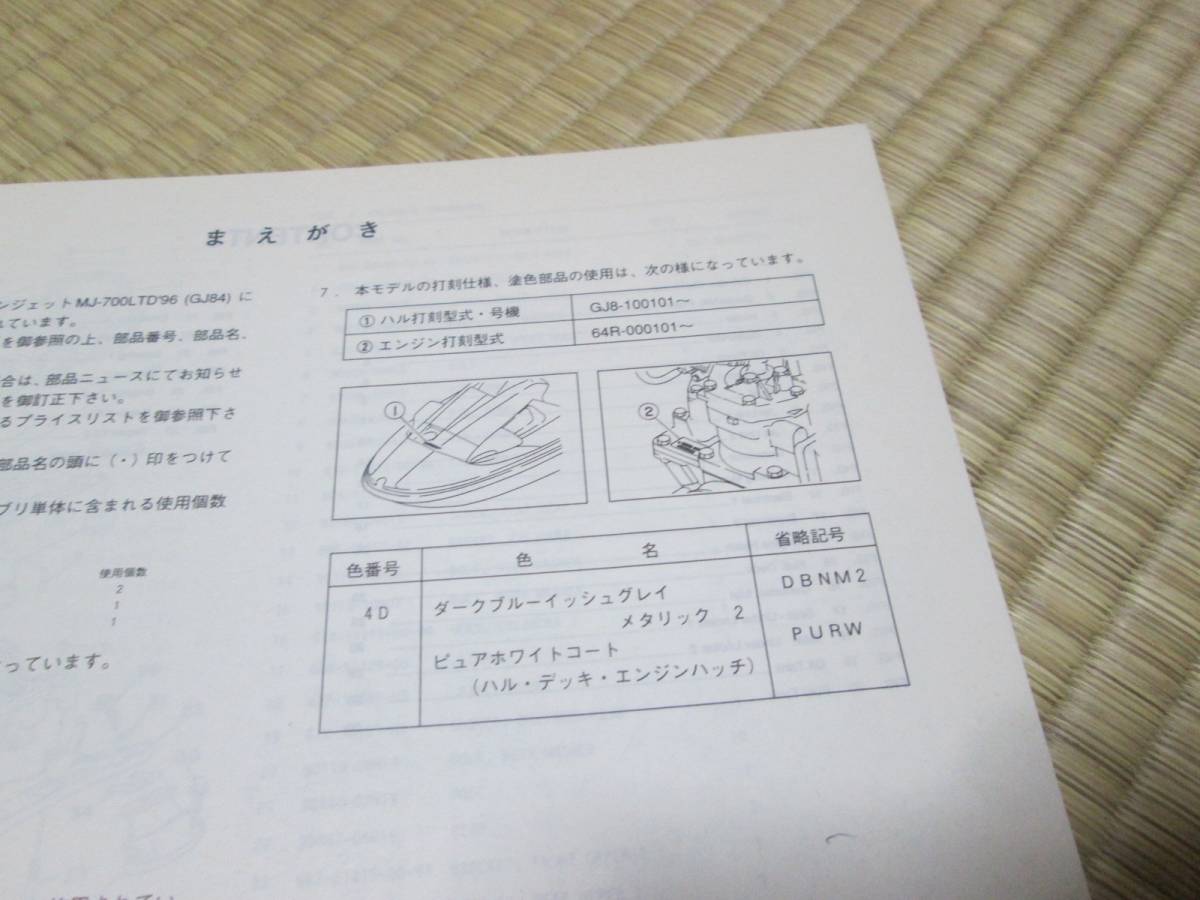 まえがき
ンジェットMJ-700LTD'96 (GJ84) に
れています。
を御参照の上、部品番号、部品名、
合は、部品ニュースにてお知らせ
を御訂正下さい。
るプライスリストを御参照下さ
部品名の頭に（・）印をつけて
ブリ単体に含まれる使用個数
使用個数
2
1
1
っています。
7. 本モデルの打刻仕様、塗色部品の使用は、次の様になっています。
① ハル打刻型式・号機 GJ8-100101～
② エンジン打刻型式 64R-000101～
①
②
色番号 色名 省略記号
4D ダークブルーイッシュグレイ DBNM2
メタリック 2
ピュアホワイトコート PURW
（ハル・デッキ・エンジンハッチ）